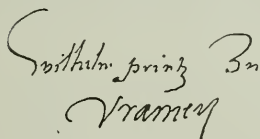 Wilhelm printz Zu
Vranien